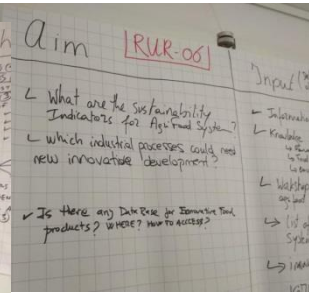 Aim
RUR-06
↳ What are the Sustainability
Indicators for Agri Food System?
↳ which industrial processes could need
new innovative development?
✓ Is there any Data Base for Innovative Food
products? WHERE? HOW TO ACCESS?
Input
Information
↳ Knowledge
↳ Food
↳ Workshop
↳ list of
System